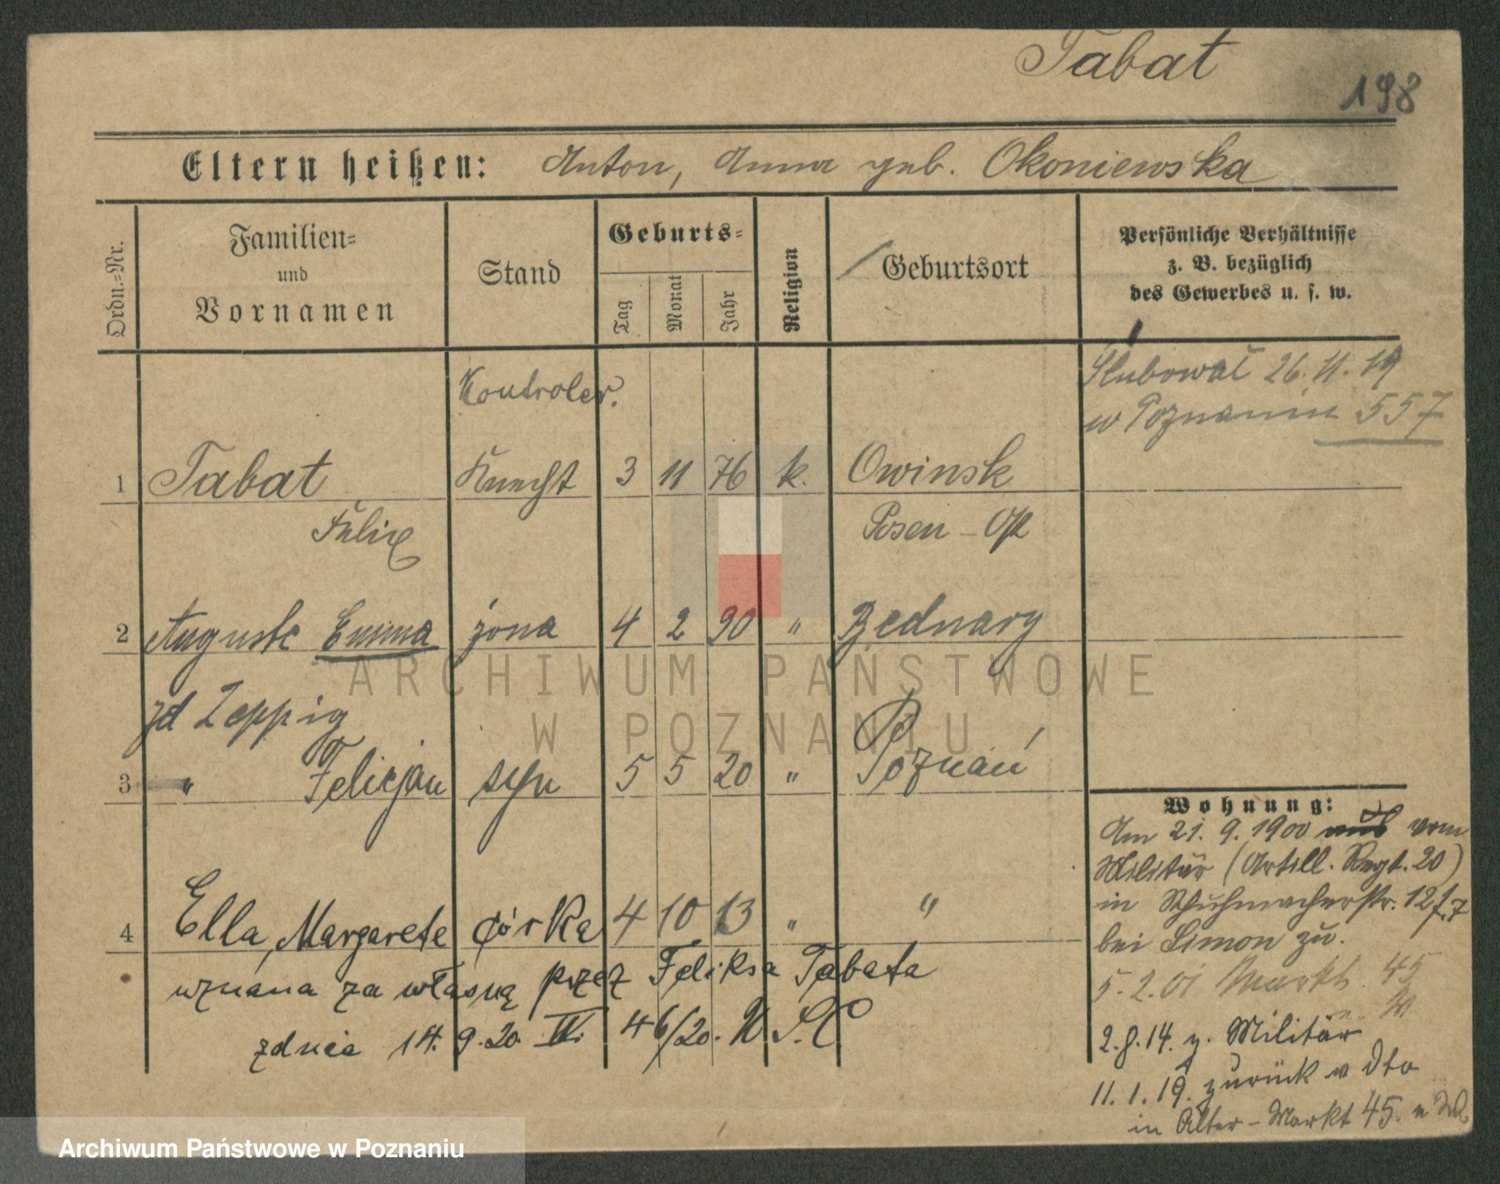 Tabat
198
Eltern heißen: Anton, Anna geb. Okoniewska
Ordn.-Nr.
Familien-
und
Vornamen
Stand
Geburts-
Tag
Monat
Jahr
Religion
Geburtsort
Persönliche Verhältnisse
z. B. bezüglich
des Gewerbes u. s. w.
Ślubował 26.11.19
w Poznaniu 557
Kontroler.
1 Tabat Knecht 3 11 76 k. Owinsk
Felix Posen - Op
2 Auguste Emma żona 4 2 90 " Bednary
zd Zeppig
3 " Felicjan syn 5 5 20 " Poznań
4 Ella, Margarete córka 4 10 13 " "
uznana za własną przez Feliksa Tabata
z dnia 14. 9. 20. IV. 46/20. U S.C
Wohnung:
Am 21. 9. 1900 aus vom
Militär (Artill. Regt. 20)
in Schuhmacherstr. 12 f. 7
bei Simon zu.
5. 2. 01 Markt. 45
2. 8. 14. z. Militär
11. 1. 19. zurück v dto
in Alter-Markt 45.
ARCHIWUM PAŃSTWOWE
W POZNANIU
Archiwum Państwowe w Poznaniu